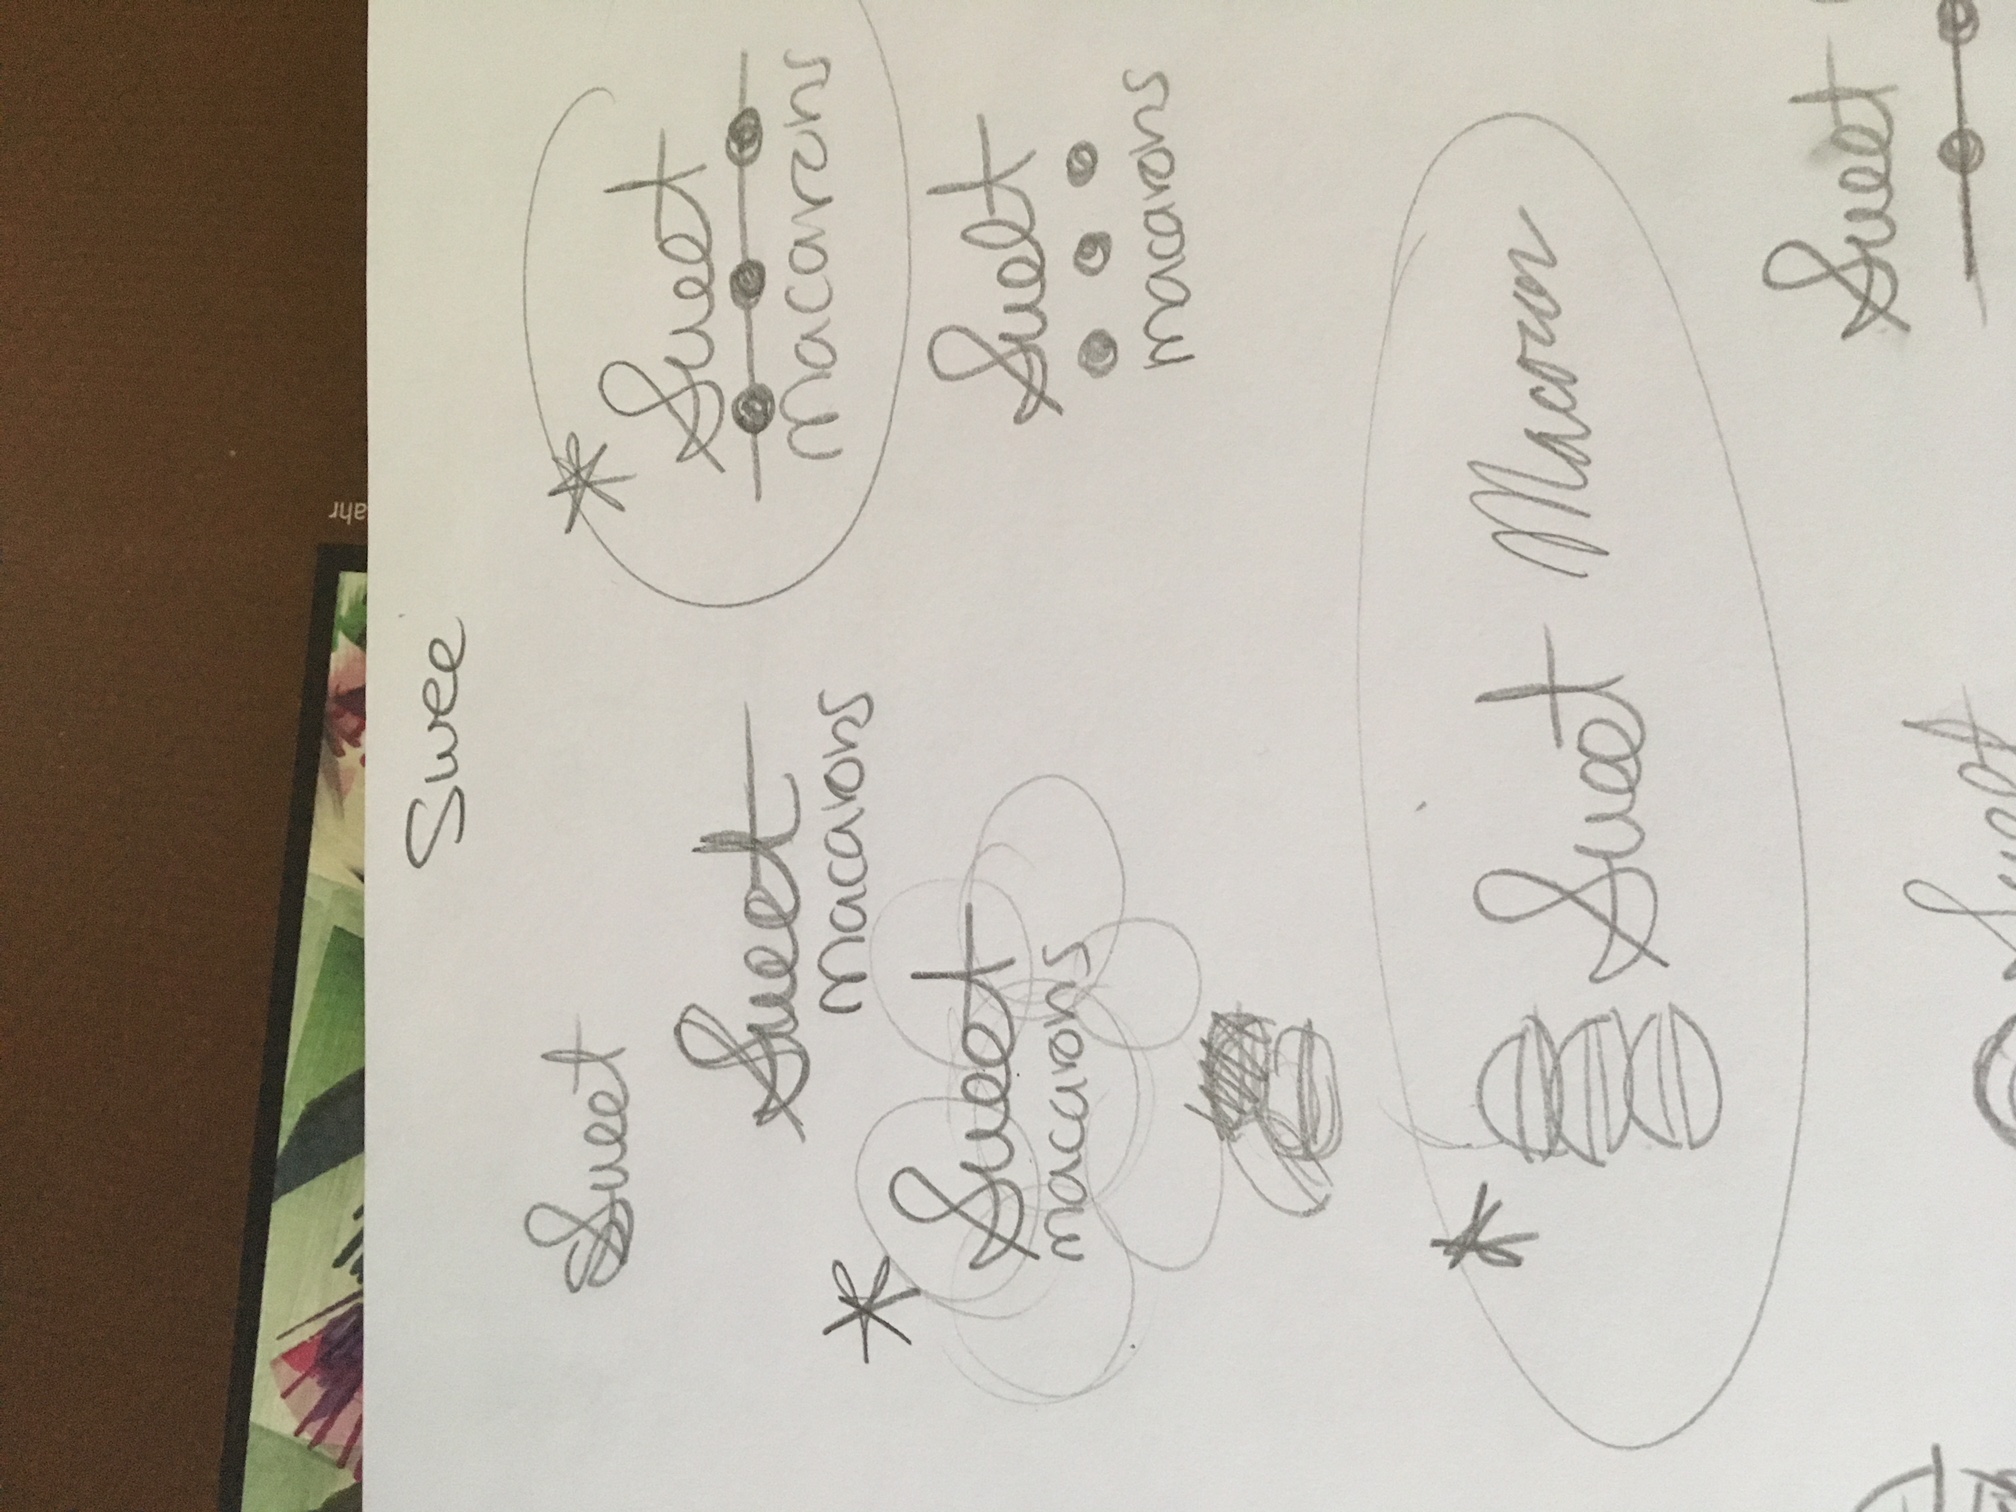 ahr
Swee
Sweet
Sweet
macarons
Sweet
macarons
Sweet
macarons
Sweet
macarons
Sweet Macaron
Sweet
Sweet